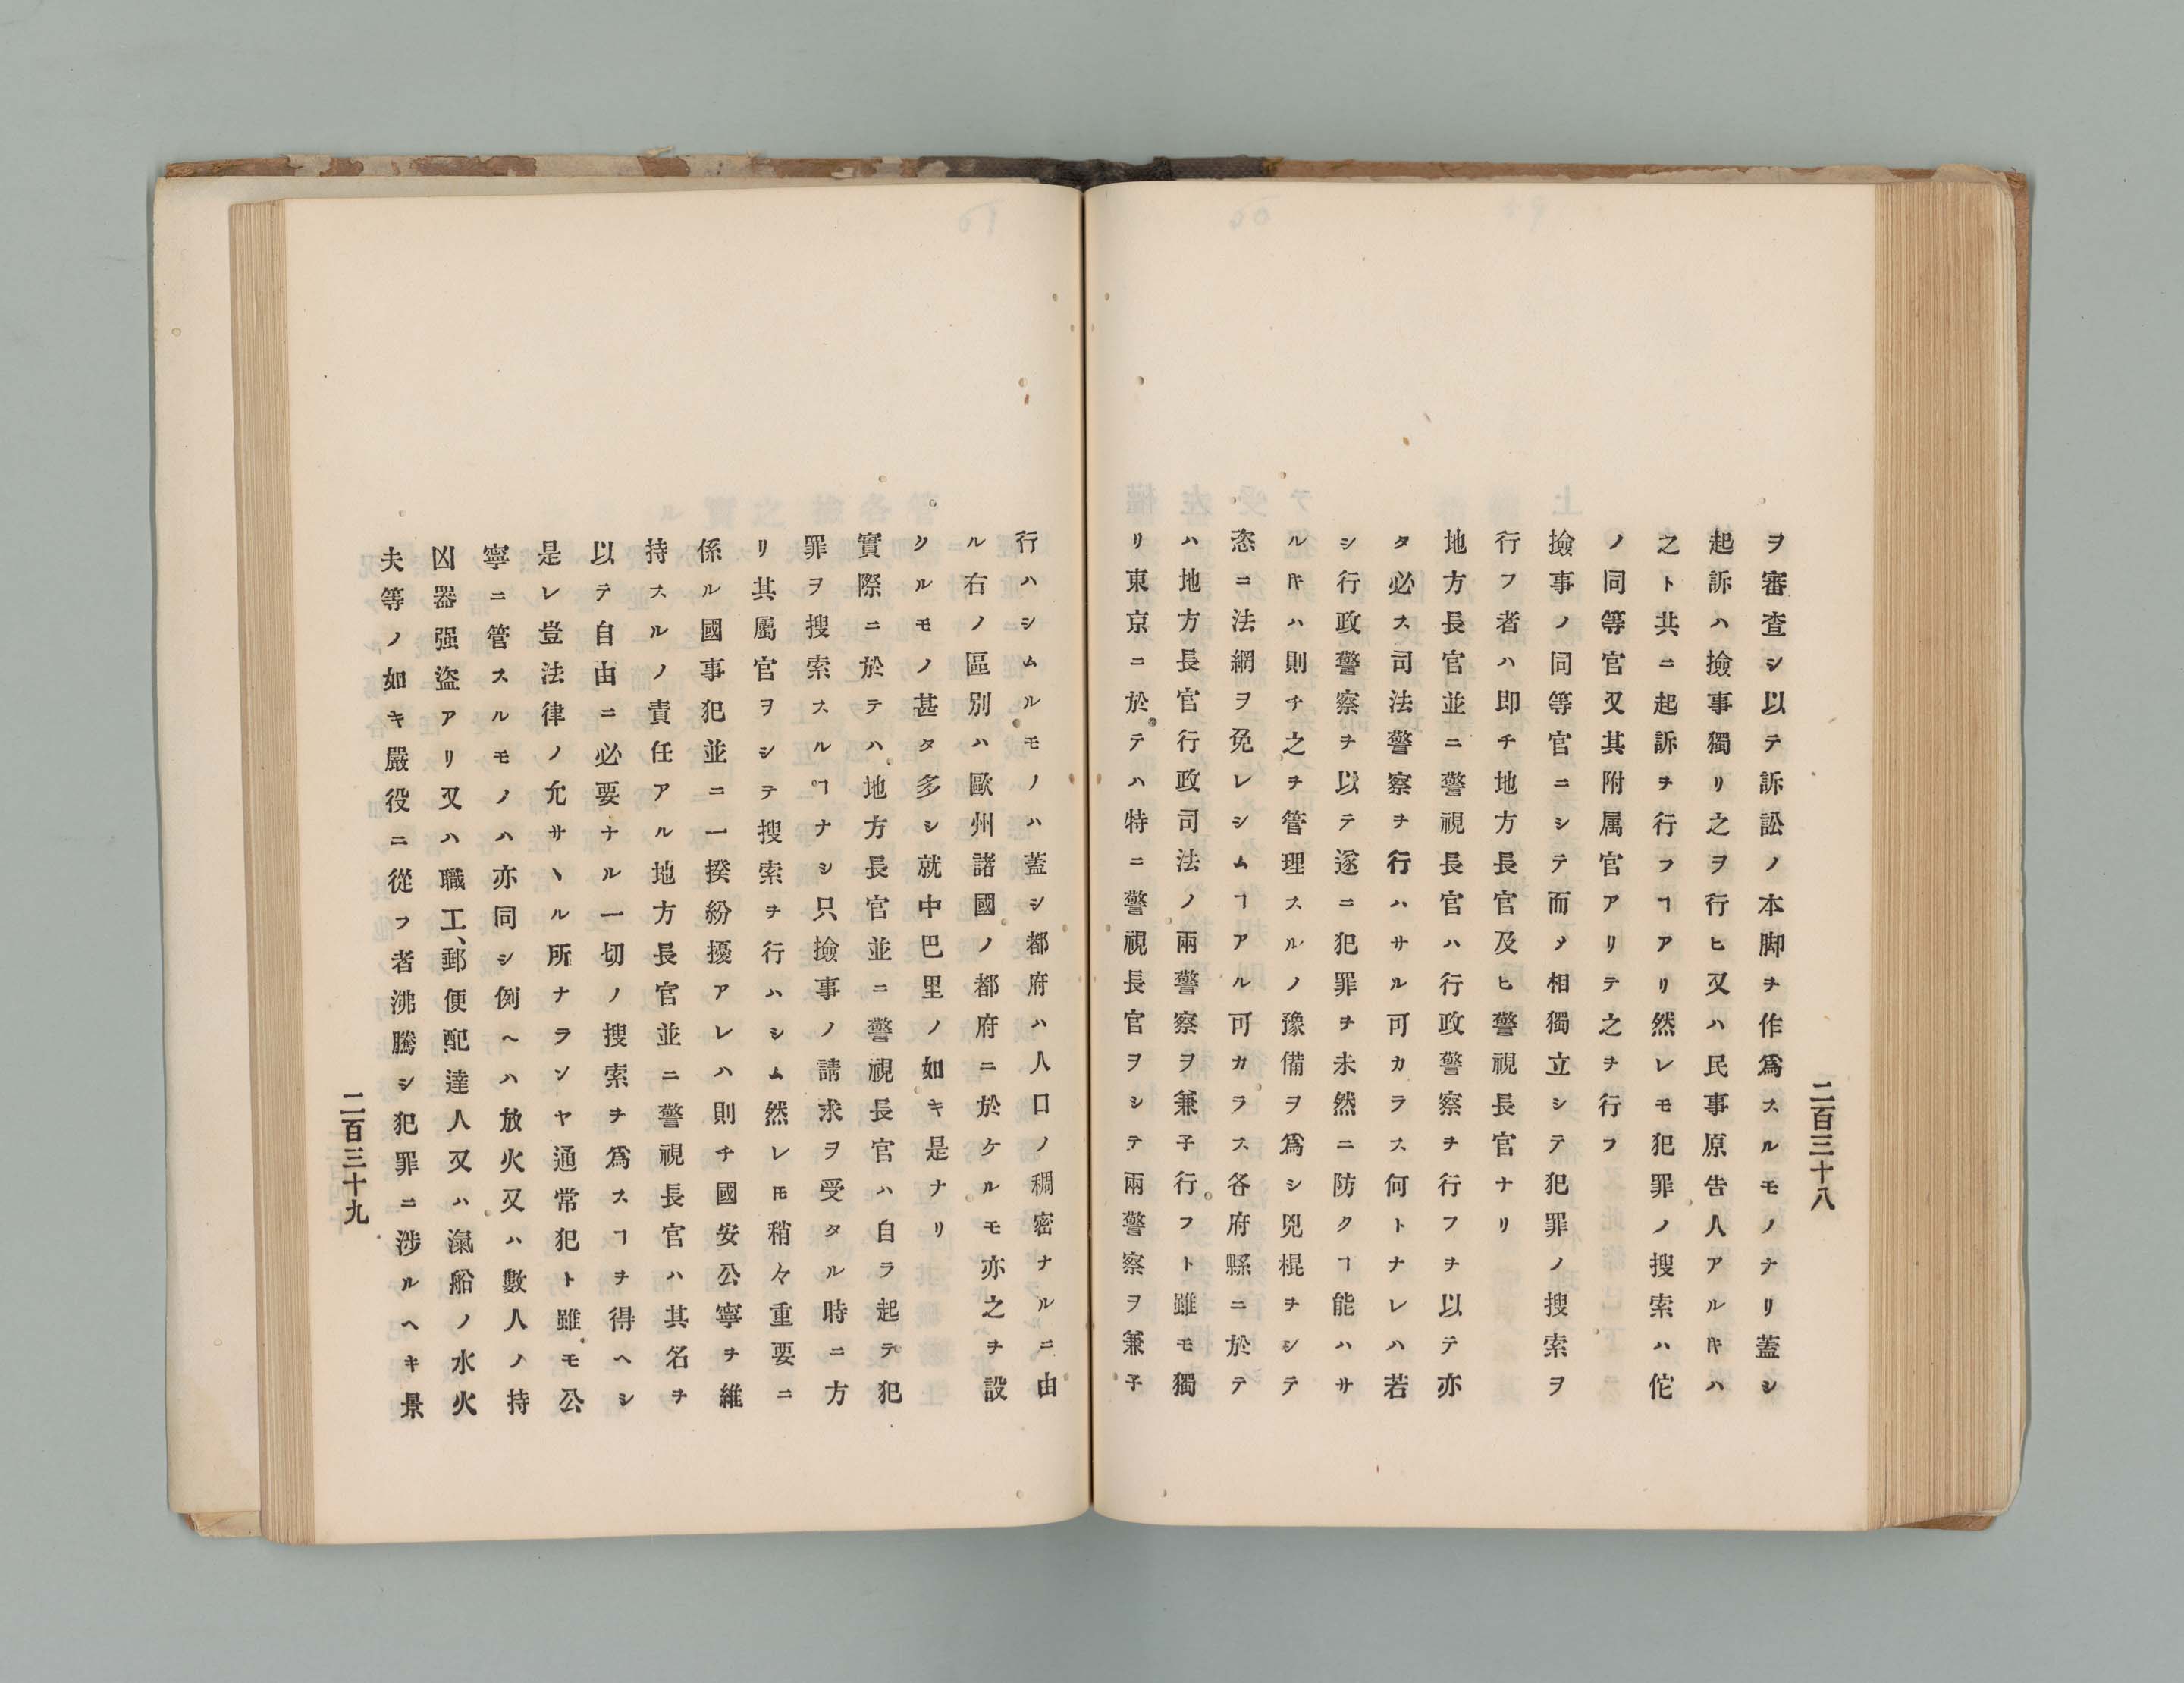 二百三十八
ヲ審査シ以テ訴訟ノ本脚ヲ作爲スルモノナリ蓋シ
起訴ハ撿事獨リ之ヲ行ヒ又ハ民事原告人アルキハ
之ト共ニ起訴ヲ行フヿアリ然レモ犯罪ノ搜索ハ佗
ノ同等官又其附属官アリテ之ヲ行フ
撿事ノ同等官ニシテ而メ相獨立シテ犯罪ノ搜索ヲ
行フ者ハ即チ地方長官及ヒ警視長官ナリ
地方長官並ニ警視長官ハ行政警察ヲ行フヲ以テ亦
タ必ス司法警察ヲ行ハサル可カラス何トナレハ若
シ行政警察ヲ以テ遂ニ犯罪ヲ未然ニ防クヿ能ハサ
ルキハ則チ之ヲ管理スルノ豫備ヲ爲シ兇棍ヲシテ
恣ニ法網ヲ免レシムヿアル可カラス各府縣ニ於テ
ハ地方長官行政司法ノ兩警察ヲ兼子行フト雖モ獨
リ東京ニ於テハ特ニ警視長官ヲシテ兩警察ヲ兼子
行ハシムルモノハ蓋シ都府ハ人口ノ稠密ナルニ由
ル右ノ區別ハ歐州諸國ノ都府ニ於ケルモ亦之ヲ設
クルモノ甚タ多シ就中巴里ノ如キ是ナリ
實際ニ於テハ地方長官並ニ警視長官ハ自ラ起テ犯
罪ヲ搜索スルヿナシ只撿事ノ請求ヲ受タル時ニ方
リ其屬官ヲシテ搜索ヲ行ハシム然レ𪜈稍々重要ニ
係ル國事犯並ニ一揆紛擾アレハ則チ國安公寧ヲ維
持スルノ責任アル地方長官並ニ警視長官ハ其名ヲ
以テ自由ニ必要ナル一切ノ搜索ヲ爲スヿヲ得ヘシ
是レ豈法律ノ允サヽル所ナランヤ通常犯ト雖モ公
寧ニ管スルモノハ亦同シ例ヘハ放火又ハ數人ノ持
凶器强盜アリ又ハ職工、郵便配達人又ハ瀛船ノ水火
夫等ノ如キ嚴役ニ從フ者沸騰シ犯罪ニ涉ルヘキ景
二百三十九